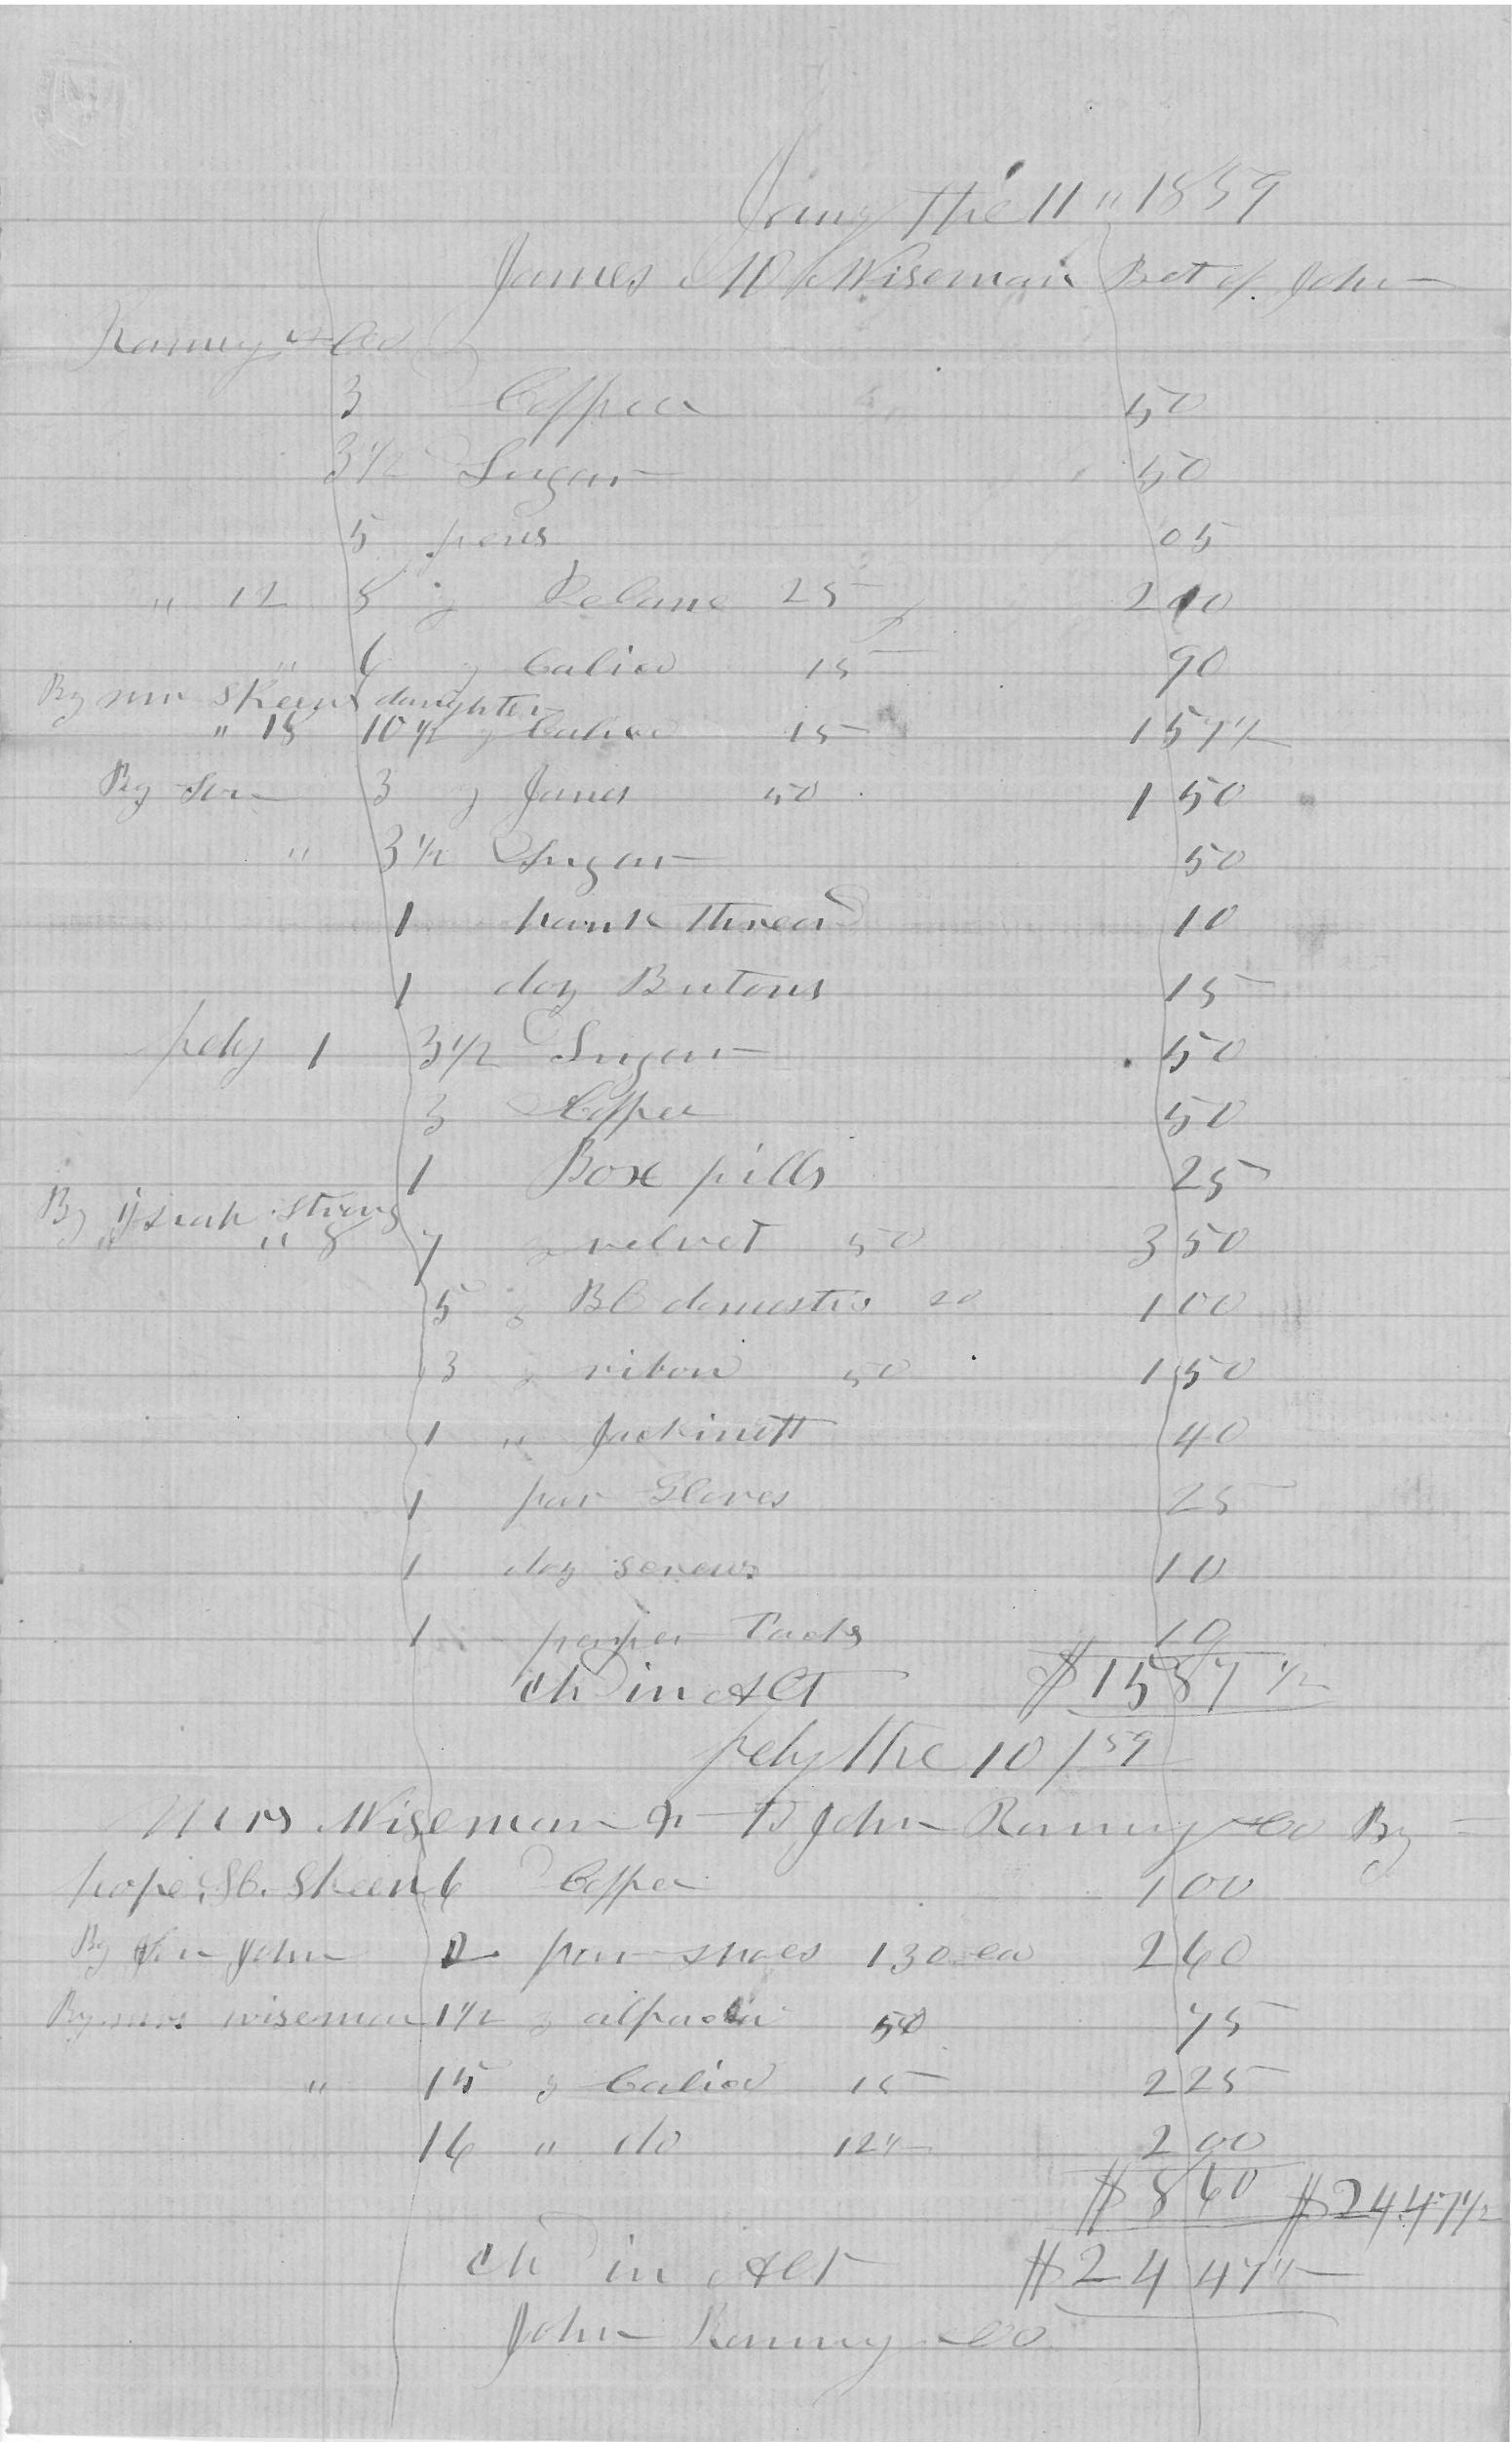 the 11 " 1859
James M Wiseman Bot of John
Ramey & Co
3 Coffee 50
3 1/2 Sugar 50
5 pens 05
" 12 8 y Delane 25 2 00
" 6 y Calico 15 90
By mr Skeens daughter
" 18 10 1/2 y Calico 15 1 57 1/2
By Son 3 y Janes 50 1 50
" 3 1/2 Sugar 50
1 hank thread 10
1 doz Butons 15
feby 1 3 1/2 Sugar 50
3 Coffee 50
1 Box pills 25
By Strong
" " 8 7 y velvet 50 3 50
5 y Bl domestic 20 1 00
3 y ribon 50 1 50
1 " Jackinett 40
1 par Gloves 25
1 doz screws 10
1 paper Tacks 10
chd in Act $15 87 1/2
feby the 10 / 59
Mrs Wiseman Dr to John Ramey & Co By
hope. Sc. Skeen 6 Coffee 1 00
By Son John 2 par shoes 130 ea 2 60
By mrs wiseman 1 1/2 y alpacka 50 75
" 15 y Calico 15 2 25
16 " do 12 1/2 2 00
$8 60 $24.47 1/2
chd in Act $24 47 1/2
John Ramey & Co